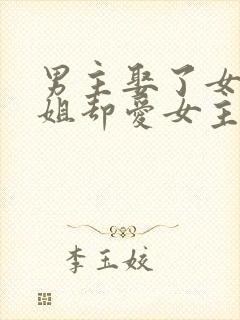 男主娶了女
姐却爱女主
李玉姣